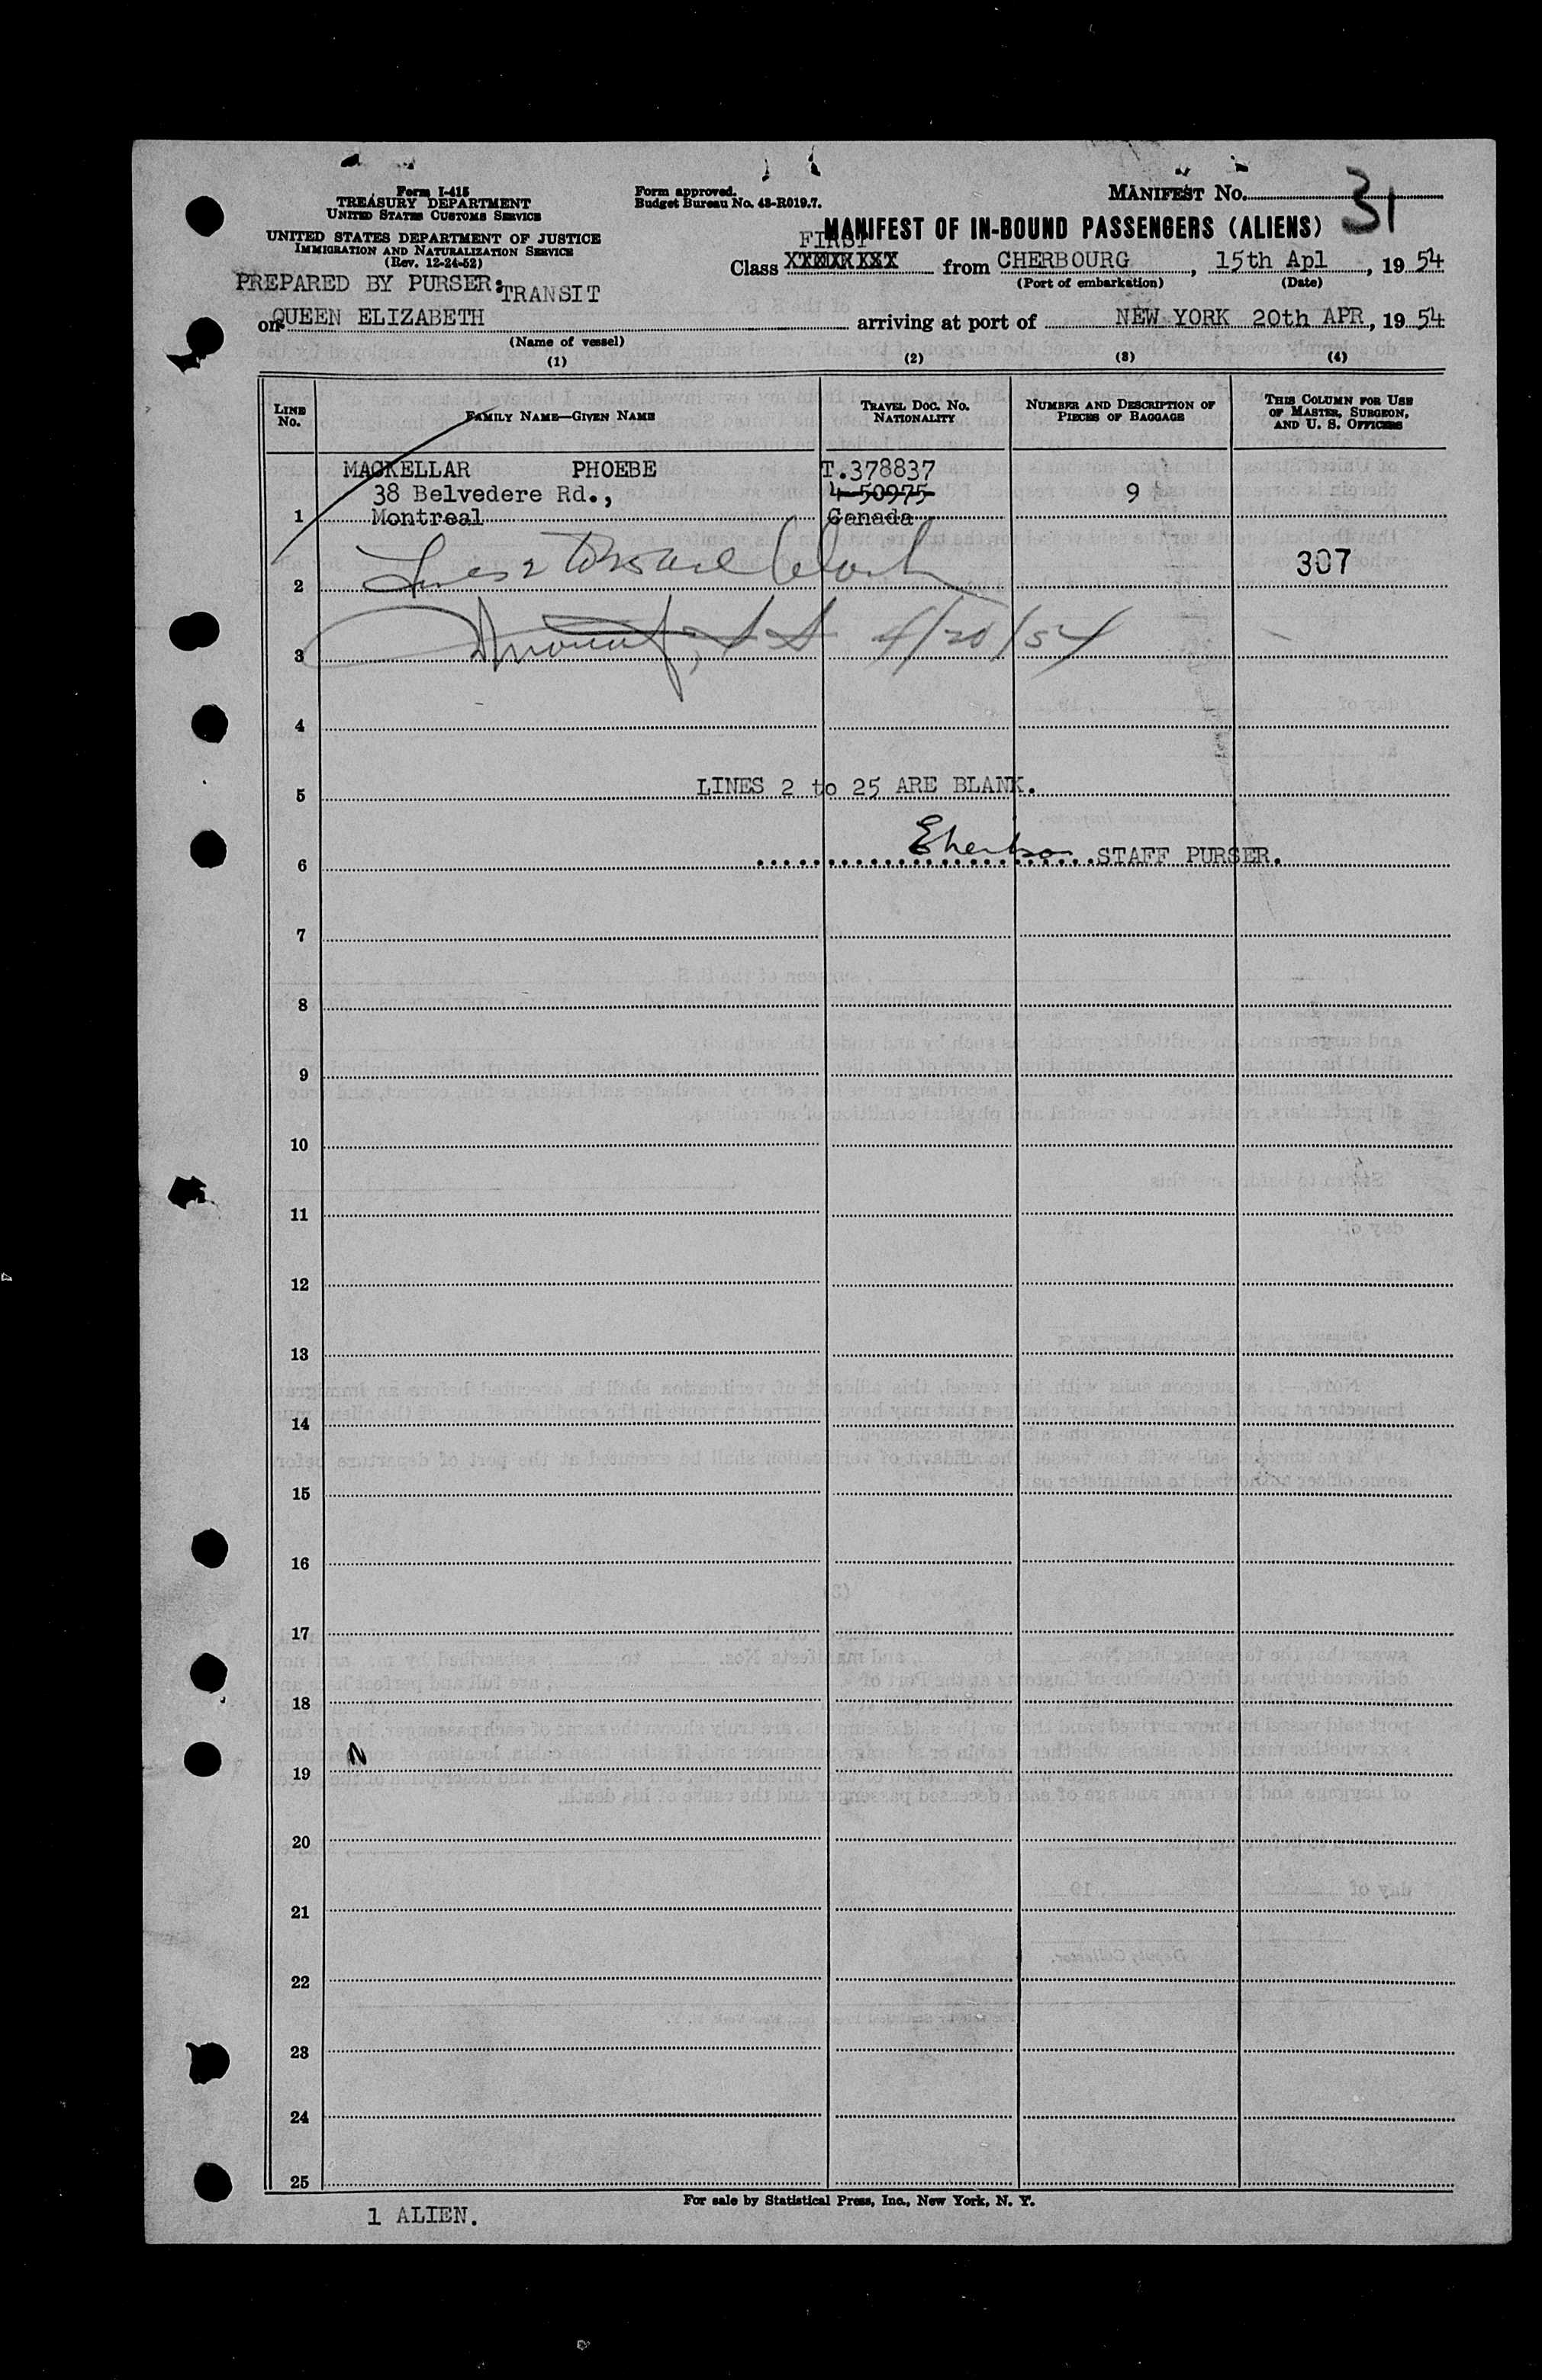 Form I-415
TREASURY DEPARTMENT
UNITED STATES CUSTOMS SERVICE
UNITED STATES DEPARTMENT OF JUSTICE
IMMIGRATION AND NATURALIZATION SERVICE
(Rev. 12-24-52)
PREPARED BY PURSER: TRANSIT
Form approved.
Budget Bureau No. 43-R019.7.
MANIFEST No. 31
MANIFEST OF IN-BOUND PASSENGERS (ALIENS)
FIRST
Class from CHERBOURG, 15th Apl, 19 54
(Port of embarkation) (Date)
on QUEEN ELIZABETH arriving at port of NEW YORK 20th APR, 19 54
(Name of vessel)
(1) (2) (3) (4)
LINE No. FAMILY NAME—GIVEN NAME TRAVEL DOC. NO. NATIONALITY NUMBER AND DESCRIPTION OF PIECES OF BAGGAGE THIS COLUMN FOR USE OF MASTER, SURGEON, AND U. S. OFFICERS
MACKELLAR PHOEBE T.378837
38 Belvedere Rd., 4-50975 9
1 Montreal Canada
2 Lines 2 to 25 are blank 307
3 4/20/54
4
5 LINES 2 to 25 ARE BLANK.
6 STAFF PURSER.
7
8
9
10
11
12
13
14
15
16
17
18
19
20
21
22
23
24
25
For sale by Statistical Press, Inc., New York, N. Y.
1 ALIEN.